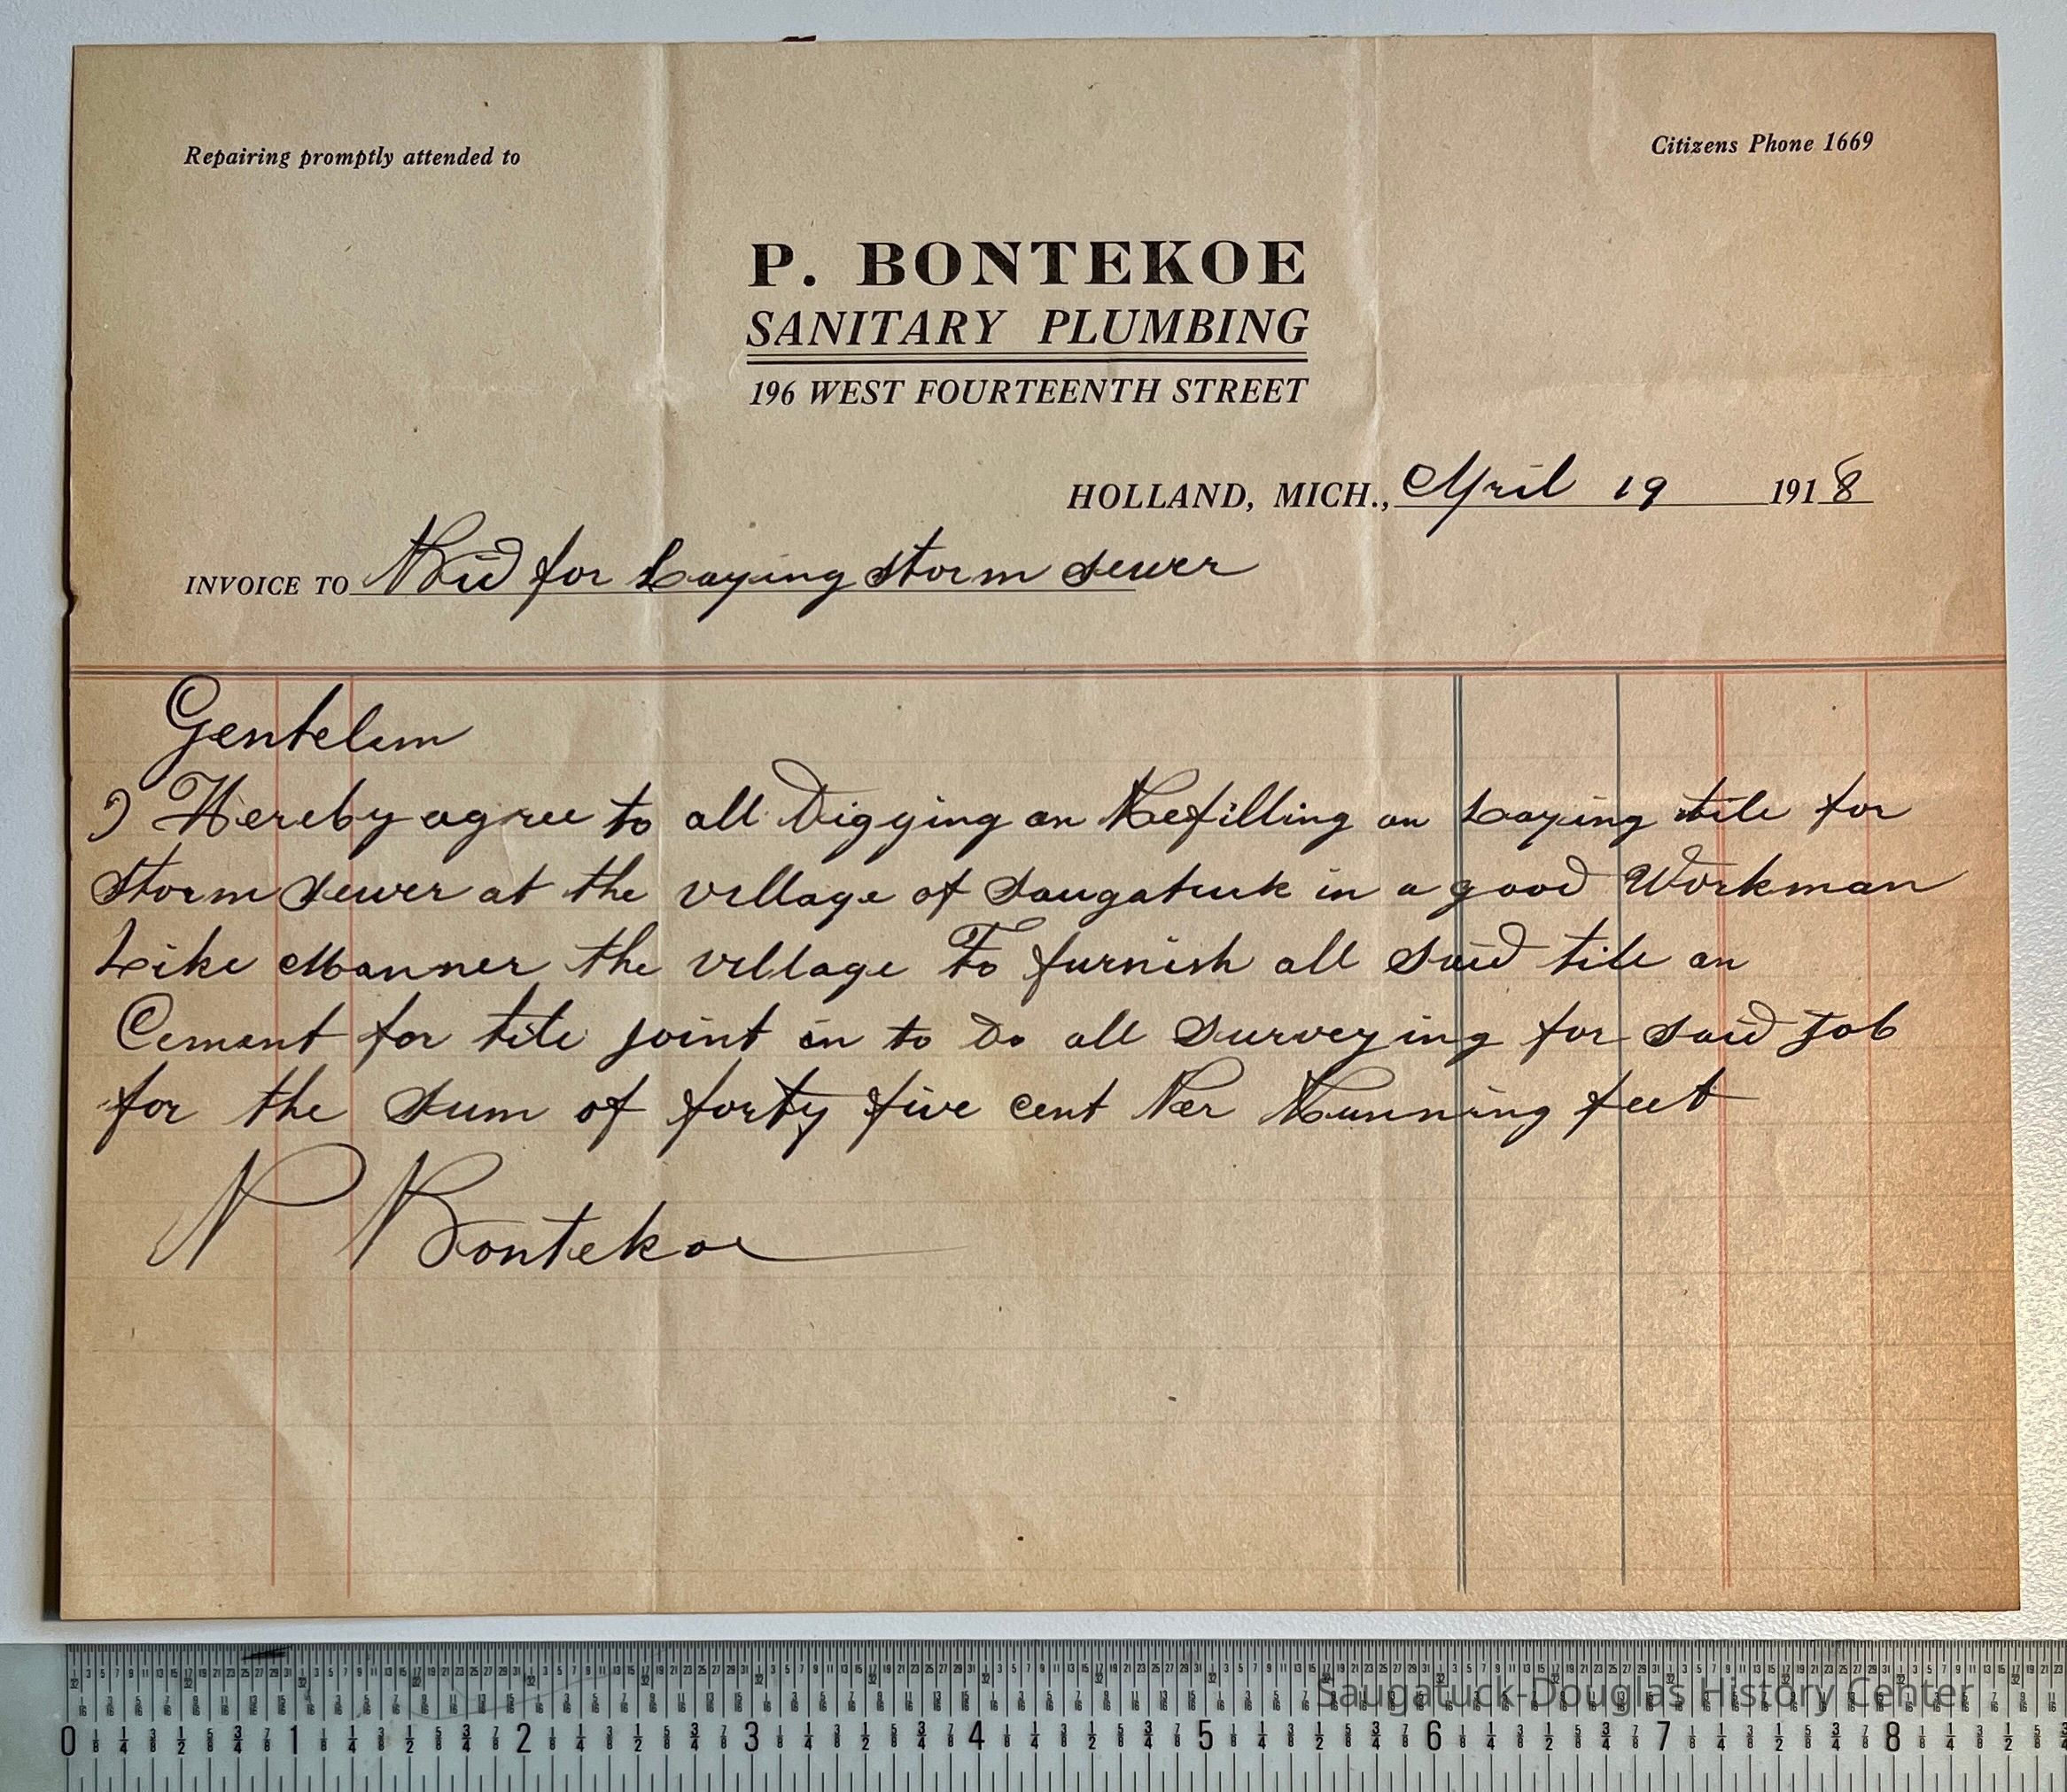 Repairing promptly attended to
Citizens Phone 1669
P. BONTEKOE
SANITARY PLUMBING
196 WEST FOURTEENTH STREET
HOLLAND, MICH., April 19 1918
INVOICE TO Bid for Laying storm sewer
Gentelem
I Hereby agree to all Digging an Refilling an Laying tile for
storm sewer at the village of Saugatuck in a good Workman
Like Manner the village To furnish all said tile an
Cement for tile joint in to Do all surveying for said Job
for the sum of forty five cent Per Running feet
P Bontekoe
Saugatuck-Douglas History Center
0 1 2 3 4 5 6 7 8